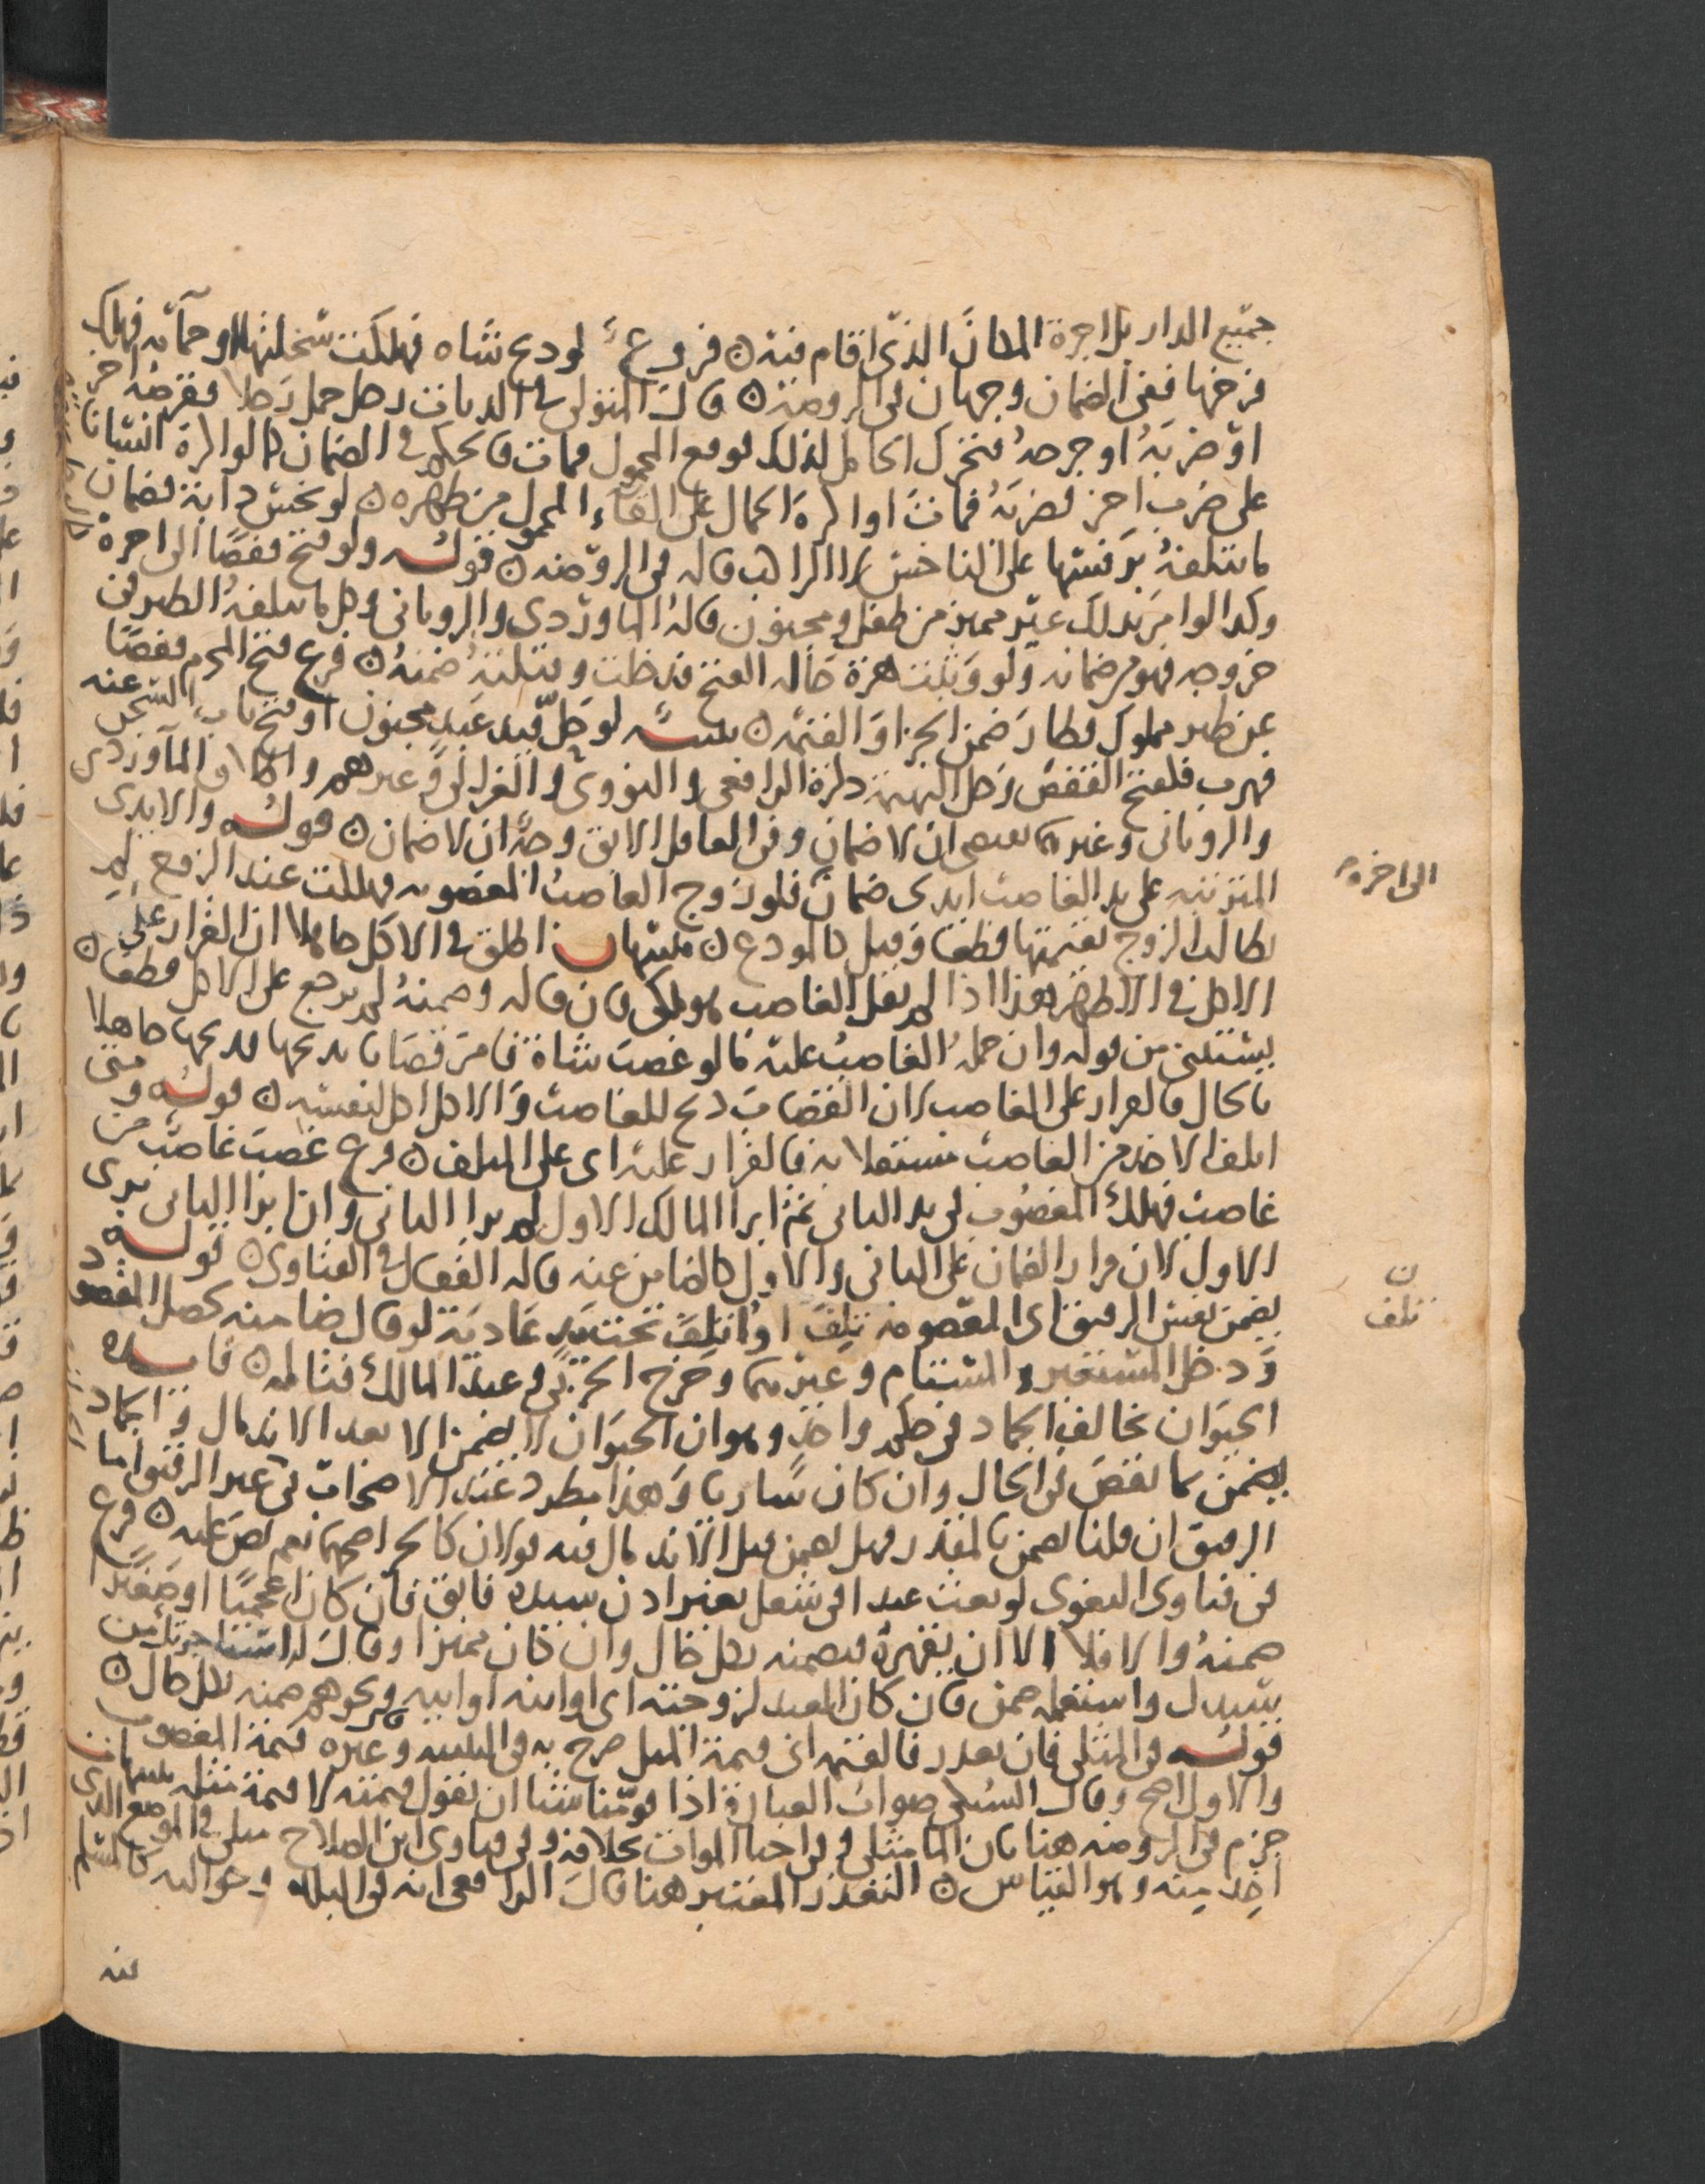 جميع الدار بل اجرة المكان الذي اقام فيه ن فروع لو ذبح شاه فهلكت سخلتها او حمامه فهلك
فرخها ففي الضمان وجهان في الروضه ن قال المتولي في الديات رجل حمل رجلا فقرصه اخر
او ضربه او جرحه فتحرك الحامل لذلك فوقع المحمول فمات فالحكم في الضمان كما لو اكره انسانا
على ضرب اخر فضربه فمات او اكره الحمال على القاء المحمول من ظهره ن لو نخس دابة فضمان
ما تتلفه برفستها على الناخس لا الراكب قاله في الروضه ن قوله ولو فتح قفصا الى اخره
وكذا لو امر بذلك غير مميز من طفل ومجنون قاله الماوردي والروياني وكل ما يتلفه الطير في
خروجه فهو من ضمانه ولو وثبت هرة حاله الفتح فدخلت وقتلته ضمنه ن فرع فتح المحرم قفصا
عن طير مملوك فطار ضمن الجزا والقيمة ن تنبيه لو حل قيد عبد مجنون او فتح باب السجن عنه
فهرب فكفتح القفص وحل البهيمة ذكره الرافعي والنووي والغزالي وغيرهم واطلاق الماوردي
والروياني وغيرهما يقتضي ان لا ضمان وفي العاقل الابق وجه ان لا ضمان ن قوله والايدي
المترتبه على يد الغاصب ايدي ضمان فلو زوج الغاصب المغصوبه فهلكت عند الزوج لم
يطالب الزوج بقيمتها قطعا وقيل كالمودع ن تنبيهان اطلق في الاكل جاهلا ان القرار على
الاكل في الاظهر هذا اذا لم يقل الغاصب هو ملكي فان قاله وضمنه لم يرجع على الاكل قطعا ن
يستثنى من قوله وان حمله الغاصب عليه ما لو غصب شاة فامر قصابا بذبحها فذبحها جاهلا
بالحال فالقرار على الغاصب لان القصاب ذبح للغاصب والاكل اكل لنفسه ن قوله ومتى
اتلف الاخذ من الغاصب مستقلا به فالقرار عليه اى على المتلف ن فرع غصب غاصب من
غاصب فهلك المغصوب في يد الثاني ثم ابرا المالك الاول لم يبرا الثاني وان ابرا الثاني برى
الاول لان قرار الضمان على الثاني والاول كالضامن عنه قاله القفال في الفتاوى ن قوله
يضمن نفس الرقيق اى المغصوب منه تلف او اتلف تحت يد عادية لو قال ضامنه لحصل المقصود
ودخل المستعير والمستام وغيرهما وخرج الحربي وعبد المالك فتامله ن فايده
الحيوان يخالف الجماد في حكم واحد وهو ان الحيوان لا يضمن الا بعد الاندمال والجماد
يضمن ما نقص في الحال وان كان ساريا وهذا مطرد عند الاصحاب في غير الرقيق اما
الرقيق ان قلنا يضمن بالمقدر فهل يضمن قبل الاندمال فيه قولان كالحر اصحهما نعم نص عليه ن فرع
في فتاوى البغوى لو بعث عبدا في شغل بغير اذن سيده فابق فان كان اعجميا او صغيرا
ضمنه والا فلا الا ان يقهره فيضمنه بكل حال وان كان مميزا وقال له استاجرتك من
سيدك واستعمله ضمن فان كان العبد لزوجته اى او ابنه او ابيه ونحوهم ضمنه بكل حال ن
قوله في المثلي فان تعذر فالقيمه اى قيمة المثل صرح به في التنبيه وغيره قيمة المغصوب
والاول اصح وقال السبكي صواب العبارة اذا قومنا شيا ان نقول قيمته لا قيمة مثله تنبيهات
جزم في الروضه هنا بان الما مثلي وفي احيا الموات بخلافه وفي فتاوى ابن الصلاح مثلي في الموضع الذي
اخذ منه وهو القياس ن التعذر المعتبر هنا قال الرافعي انه في البلد وحواليه كالسلم
الى اخره
ن
تلف
فيه